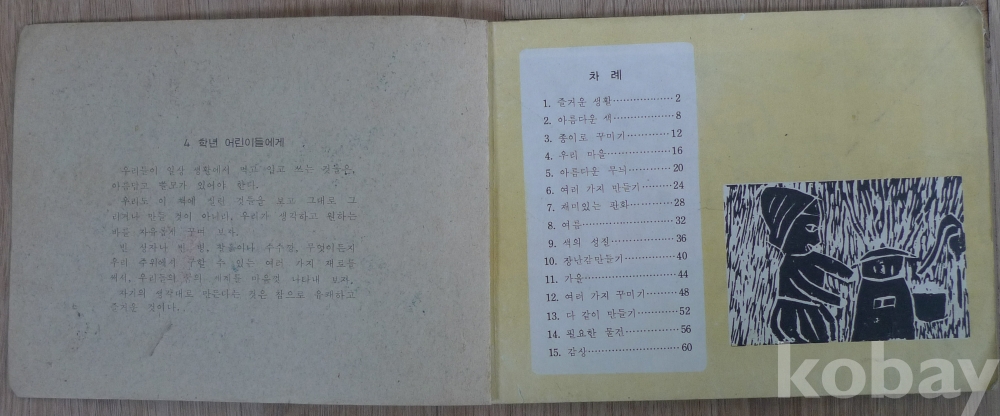 4 학년 어린이들에게
우리들이 일상 생활에서 먹고 입고 쓰는 것들은,
아름답고 쓸모가 있어야 한다.
우리도 이 책에 실린 것들을 보고 그대로 그
리거나 만들 것이 아니라, 우리가 생각하고 원하는
바를 아름답게 꾸며 보자.
빈 상자나 빈 병, 찰흙이나 수수깡, 무엇이든지
우리 주위에서 구할 수 있는 여러 가지 재료를
써서, 우리들의 마음껏 나타내 보자.
자기의 생각대로 만든다는 것은 참으로 유쾌하고
즐거운 것이다.
차 례
1. 즐거운 생활……………………2
2. 아름다운 색……………………8
3. 종이로 꾸미기…………………12
4. 우리 마을………………………16
5. 아름다운 무늬…………………20
6. 여러 가지 만들기………………24
7. 재미있는 판화…………………28
8. 여름………………………………32
9. 색의 성질………………………36
10. 장난감만들기…………………40
11. 가을……………………………44
12. 여러 가지 꾸미기……………48
13. 다 같이 만들기………………52
14. 필요한 물건……………………56
15. 감상……………………………60
kobay